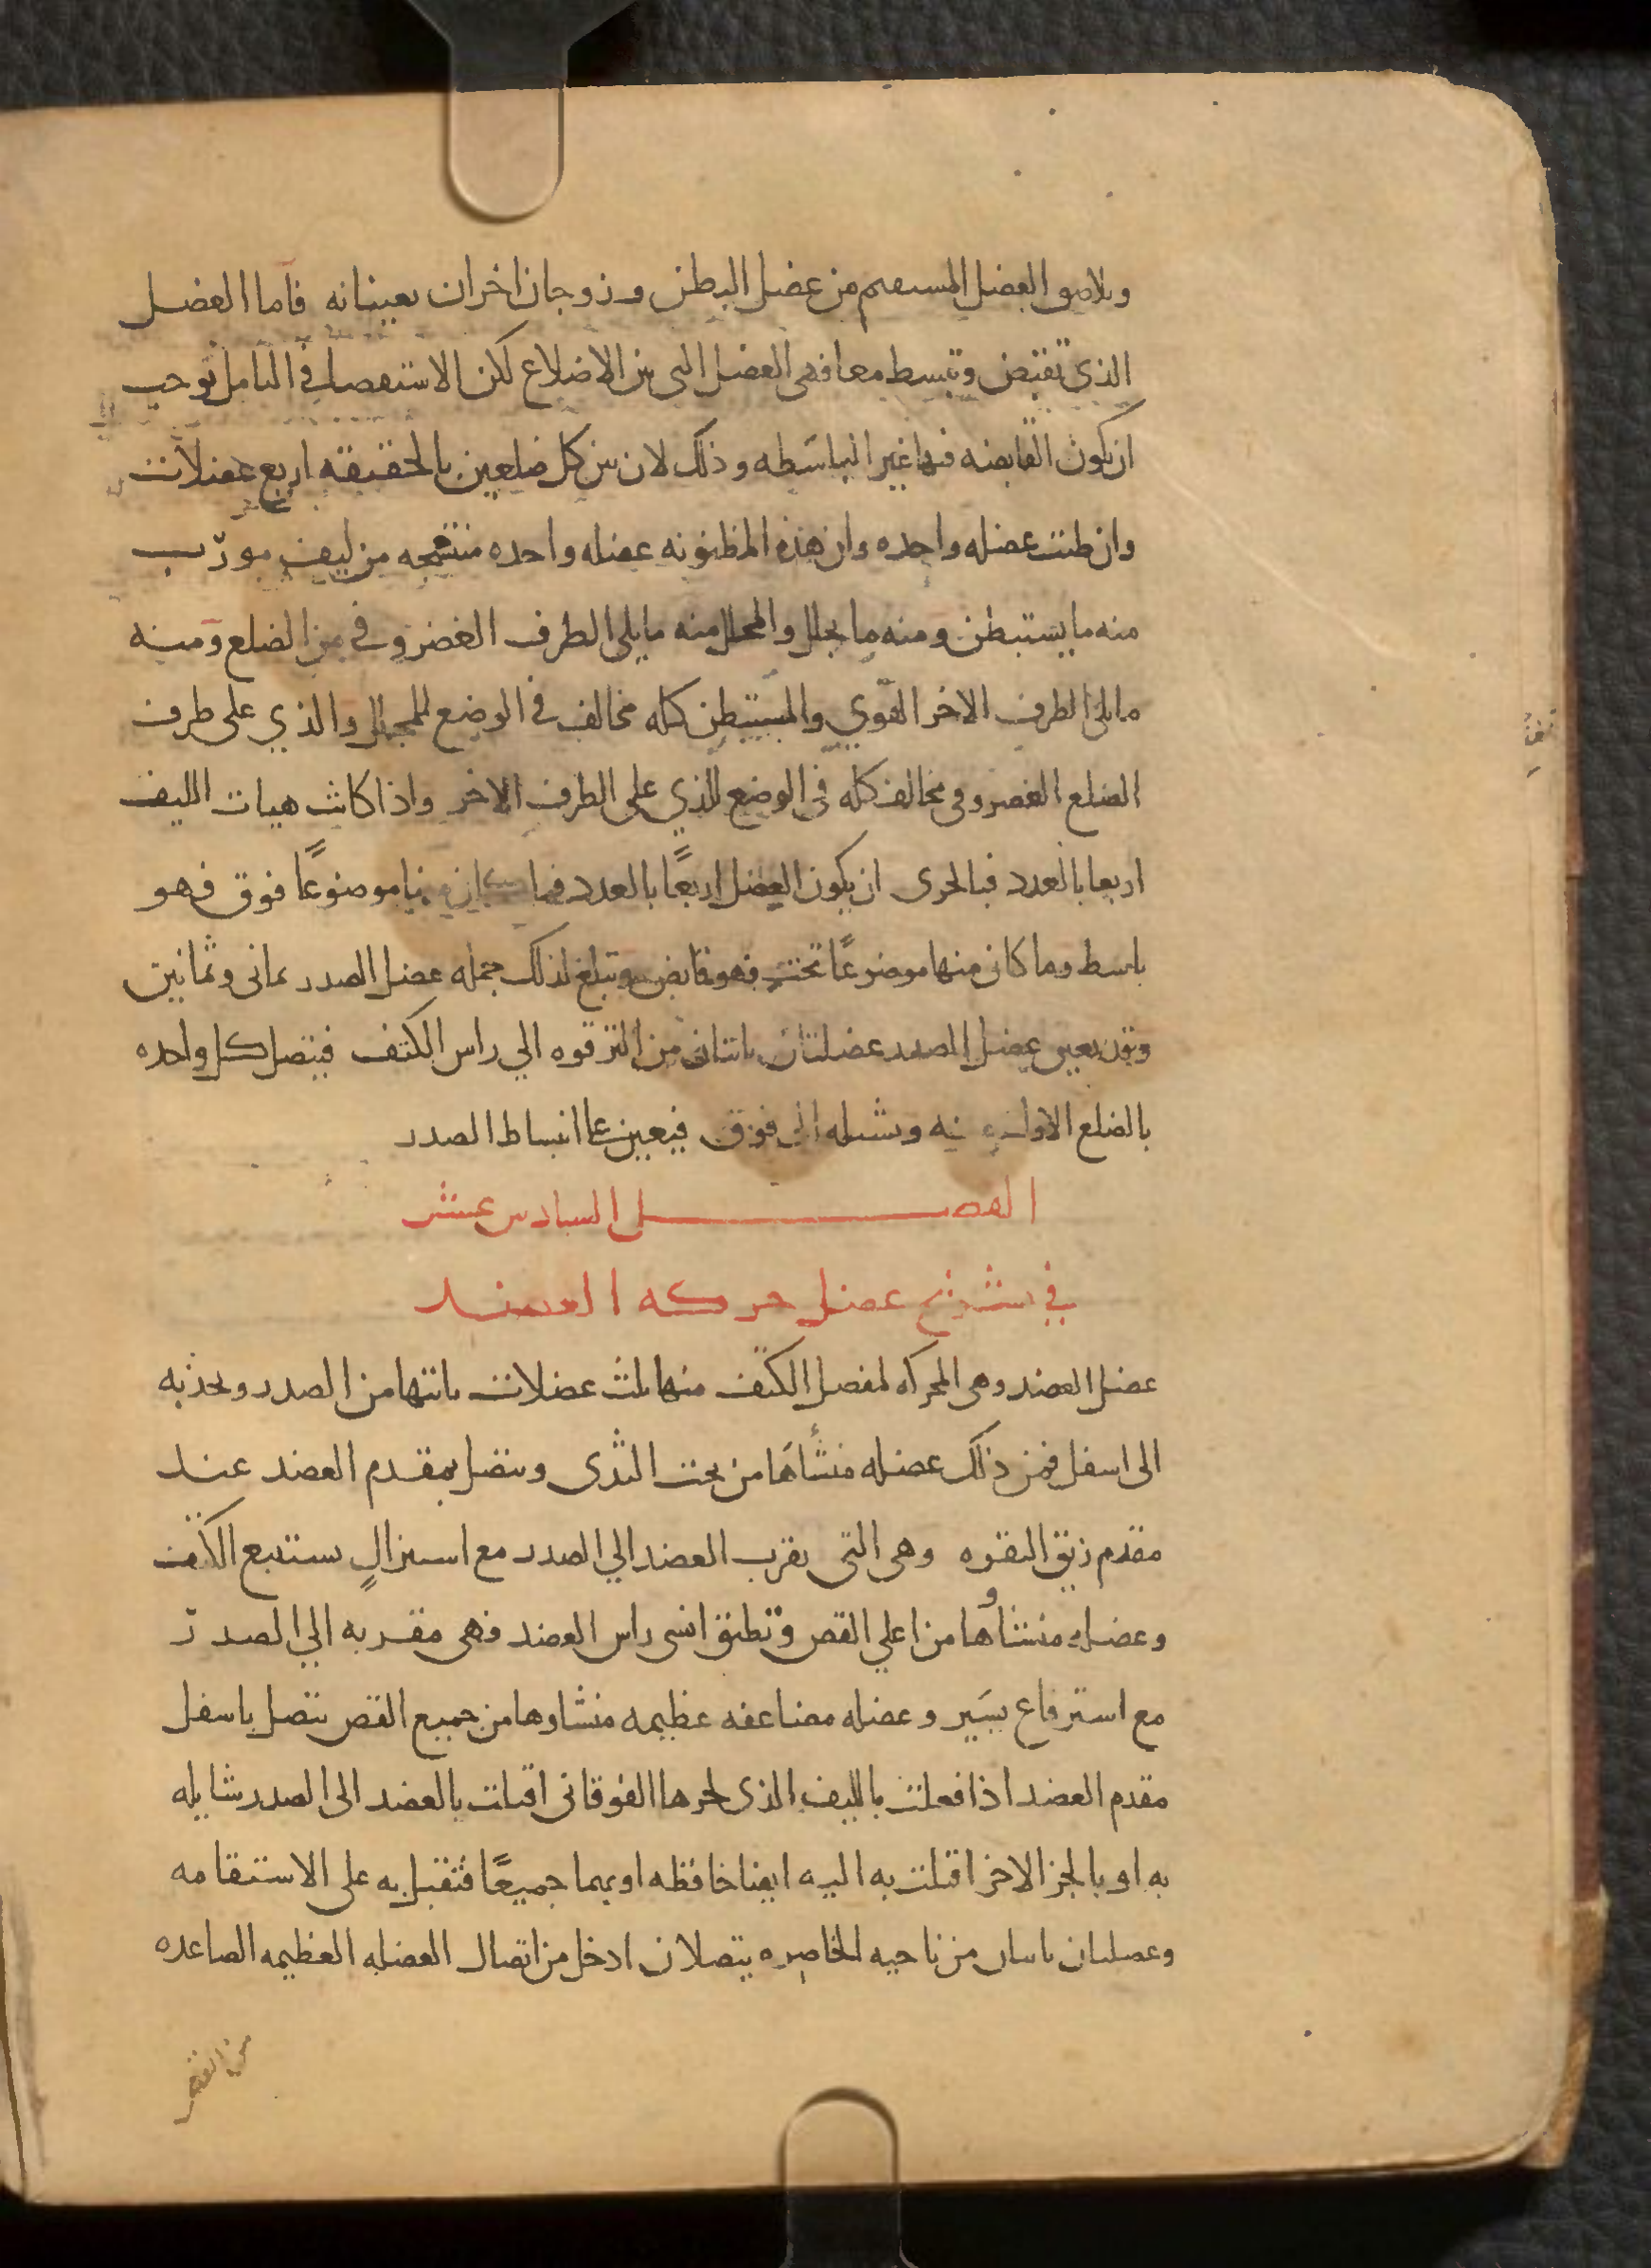 وىلاصق العضل المستقيم من عضل البطن وزوجان اخران يعينانه فاما العضل
الذي تقبض وتبسط معا فهى العضل التى بين الاضلاع لكن الاستقصا فى التامل توجب
ان تكون القابضه فيها غير الباسَطه وذلك لان بين كل ضلعين بالحقيقه اربع عضلات
وان ظنت عضله واحده وان هذه المظنونه عضله واحده منتسجه من ليف مورّب
منه ما يستبطن ومنه ما يجلل والمجلل منه ما يلى الطرف الغضروفى من الضلع ومنه
ما يلى الطرف الاخر القوي والمستبطن كله مخالف فى الوضع للمجلل والذي على طرف
الضلع الغضروفى مخالف كله فى الوضع للذي على الطرف الاخر واذا كانت هيات الليف
اربعا بالعدد فبالحرى ان يكون العضل اربعًا بالعدد فما كان منها موضوعًا فوق فهو
باسط وما كان منها موضوعًا تحت فهو قابض وتبلغ لذلك جمله عضل الصدر ثمانى وثمانين
وقد يعين عضل الصدر عضلتان ياتيان من الترقوه الي راس الكتف فيتصل كل واحده
بالضلع الاول منه وتشيله الى فوق فيعين على انبساط الصدر
الفصل السادس عشر
في تشريح عضل حركه العضد
عضل العضد وهى المحركه لمفصل الكتف منها ثلث عضلات ياتيها من الصدر ويجذبه
الى اسفل فمن ذلك عضله منشأهَا من تحت الثدى ويتصل بمقدم العضد عند
مقدم زيق النقره وهى التى يقرب العضد الي الصدر مع استنزالٍ يستتبع الكتف
وعضله منشأوها من اعلي القص وتطيق انسى راس العضد فهى مقربه الي الصدر
مع استرفاع يسَير وعضله مضاعفه عظيمه منشاوها من جميع القص يتصل باسفل
مقدم العضد اذا فعلت بالليف الذى لجرها الفوقانى اقبلت بالعضد الى الصدر شايله
به او بالجز الاخر اقبلت به اليه ايضا خافظه او بهما جميعًا فتقبل به على الاستقامه
وعضلتان ياتيان من ناحيه الخاصره يتصلان ادخل من اتصال العضله العظيمه الصاعده
من القص